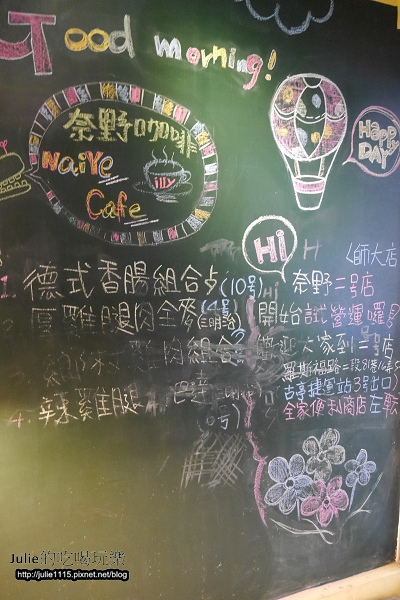 Tood morning!
奈野咖啡
NaiYe
illy
Cafe
Happy DAY
Hi
(師大店
1. 德式香腸組合(10号)
厚雞腿肉全麥(4号)
(三明治)
雞肉組合
4. 辣雞腿
奈野二号店
開始試營運囉
歡迎大家到二号店
羅斯福路二段
古亭捷運站3号出口)
全家便利商店左転
Julie的吃喝玩樂
http://julie1115.pixnet.net/blog